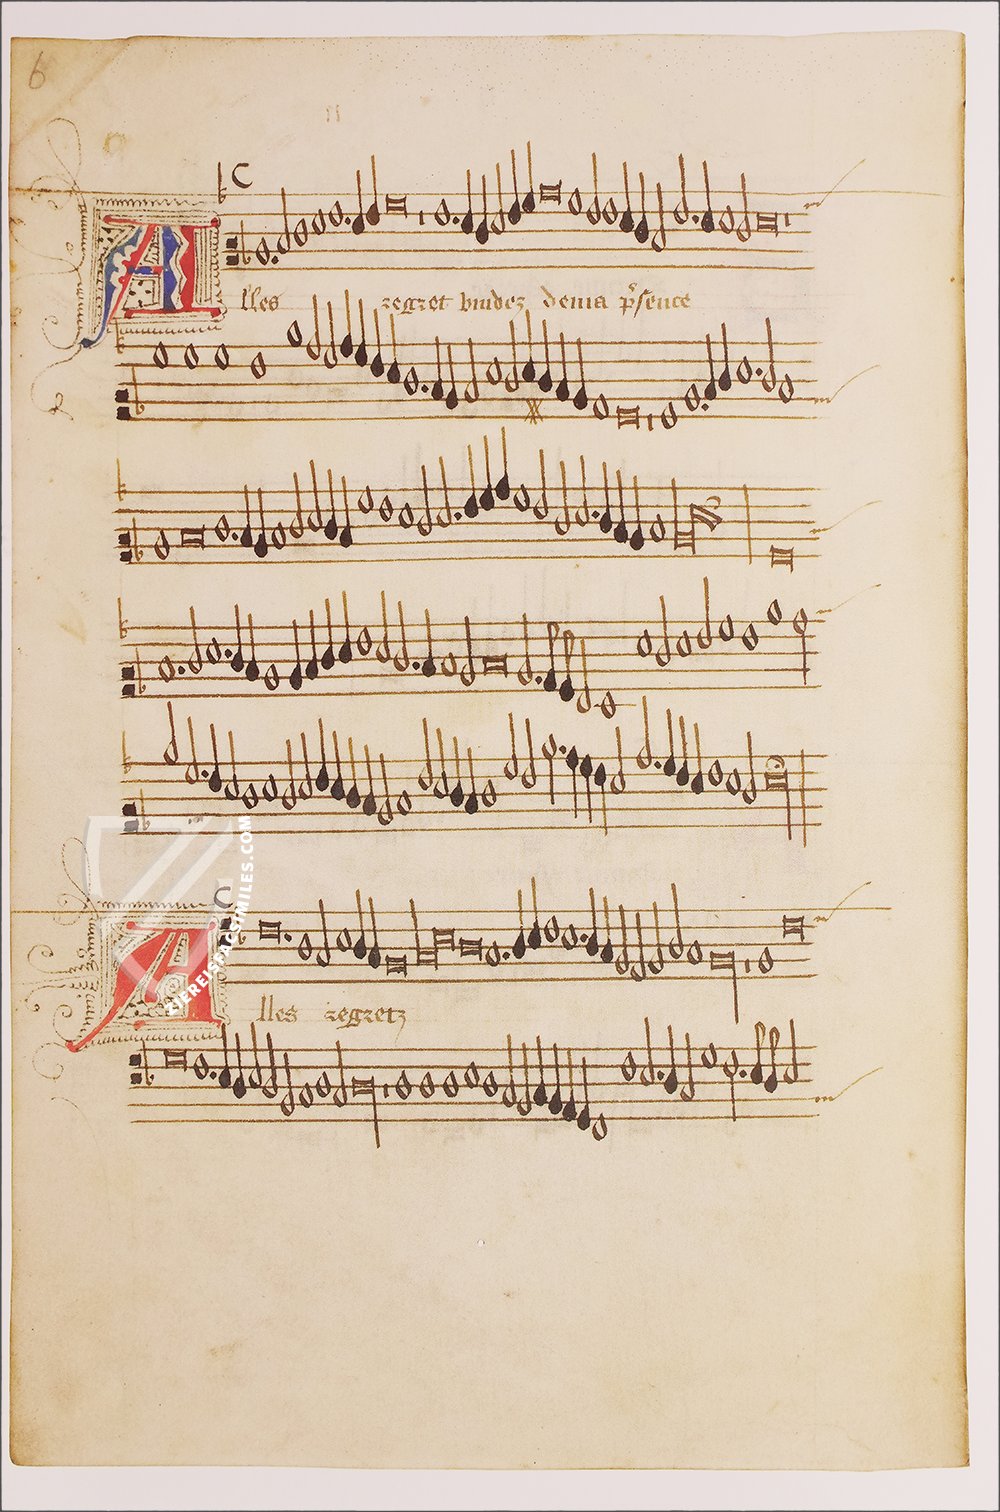 6
C
A lles regret vuidez dema p̄sence
C
A lles regretz
ZIEREISFACSIMILES.COM